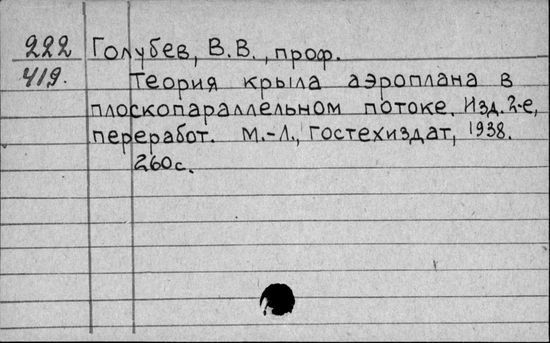 222 Голубев, В.В., проф.
419. Теория крыла аэроплана в
плоскопараллельном потоке. Изд. 2-е,
переработ. М.-Л., Гостехиздат, 1938.
260с.